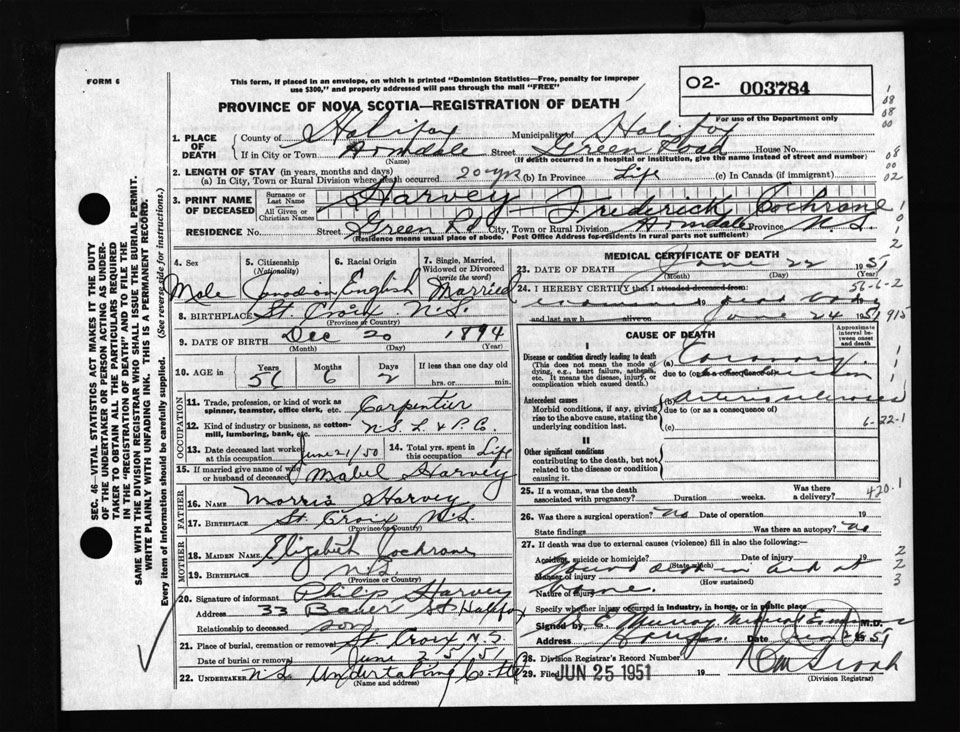 FORM 6
This form, if placed in an envelope, on which is printed "Dominion Statistics—Free, penalty for improper
use $300," and properly addressed will pass through the mail "FREE"
O2- 003784
For use of the Department only
PROVINCE OF NOVA SCOTIA—REGISTRATION OF DEATH
1. PLACE OF DEATH
County of Halifax Municipality of Halifax
If in City or Town Armdale Street Green Road House No.
(Name) (If death occurred in a hospital or institution, give the name instead of street and number)
2. LENGTH OF STAY (in years, months and days)
(a) In City, Town or Rural Division where death occurred 20 yrs (b) In Province Life (c) In Canada (if immigrant)
3. PRINT NAME OF DECEASED
Surname or Last Name Harvey
All Given or Christian Names Frederick Cochrane
RESIDENCE No. Street Green Rd City, Town or Rural Division Armdale Province N.S.
(Residence means usual place of abode. Post Office Address for residents in rural parts not sufficient)
4. Sex Male
5. Citizenship (Nationality) Canadian
6. Racial Origin English
7. Single, Married, Widowed or Divorced (write the word) Married
8. BIRTHPLACE St. Croix N.S.
(Province or Country)
9. DATE OF BIRTH Dec 20 1894
(Month) (Day) (Year)
10. AGE in Years 56 Months 6 Days 2 If less than one day old
hrs. or min.
OCCUPATION
11. Trade, profession, or kind of work as spinner, teamster, office clerk, etc. Carpenter
12. Kind of industry or business, as cotton-mill, lumbering, bank, etc. N.S. L & P. Co.
13. Date deceased last worked at this occupation June 21/50
14. Total yrs. spent in this occupation Life
15. If married give name of wife or husband of deceased Mabel Harvey
FATHER
16. Name Morris Harvey
17. Birthplace St. Croix N.S.
(Province or Country)
MOTHER
18. Maiden Name Elizabeth Cochrane
19. Birthplace N.S.
(Province or Country)
20. Signature of informant Philip Harvey
Address 33 Bauer St Halifax
Relationship to deceased son
21. Place of burial, cremation or removal St. Croix N.S.
Date of burial or removal June 25/51
22. UNDERTAKER N.S. Undertaking Co. Ltd
(Name and address)
MEDICAL CERTIFICATE OF DEATH
23. DATE OF DEATH June 22 1951
(Month) (Day) (Year)
24. I HEREBY CERTIFY that I attended deceased from:
56-6-2
19 dead body
and last saw h alive on June 24 1951
915
CAUSE OF DEATH
Approximate interval between onset and death
I
Disease or condition directly leading to death
(This does not mean the mode of dying, e.g., heart failure, asthenia, etc. It means the disease, injury, or complication which caused death.)
(a) Coronary
due to (or as a consequence of)
Occlusion
Antecedent causes
Morbid conditions, if any, giving rise to the above cause, stating the underlying condition last.
(b) Arteriosclerosis
due to (or as a consequence of)
6-22-1
(c)
II
Other significant conditions
contributing to the death, but not related to the disease or condition causing it.
25. If a woman, was the death associated with pregnancy? Duration weeks. Was there a delivery?
420.1
26. Was there a surgical operation? No Date of operation 19
State findings Was there an autopsy? No
27. If death was due to external causes (violence) fill in also the following:—
Accident, suicide or homicide? Date of injury 19
(State which)
Manner of injury Found dead in bed at
(How sustained)
Nature of injury home.
Specify whether injury occurred in industry, in home, or in public place
Signed by E. Murray Medical Examiner M.D.
Address Halifax Date 1951
28. Division Registrar's Record Number
29. Filed JUN 25 1951 19
(Division Registrar)
SEC. 46—VITAL STATISTICS ACT MAKES IT THE DUTY
OF THE UNDERTAKER OR PERSON ACTING AS UNDER-
TAKER TO OBTAIN ALL THE PARTICULARS REQUIRED
IN THE "REGISTRATION OF DEATH" AND TO FILE THE
SAME WITH THE DIVISION REGISTRAR WHO SHALL ISSUE THE BURIAL PERMIT.
WRITE PLAINLY WITH UNFADING INK. THIS IS A PERMANENT RECORD.
Every item of information should be carefully supplied. (See reverse for instructions.)